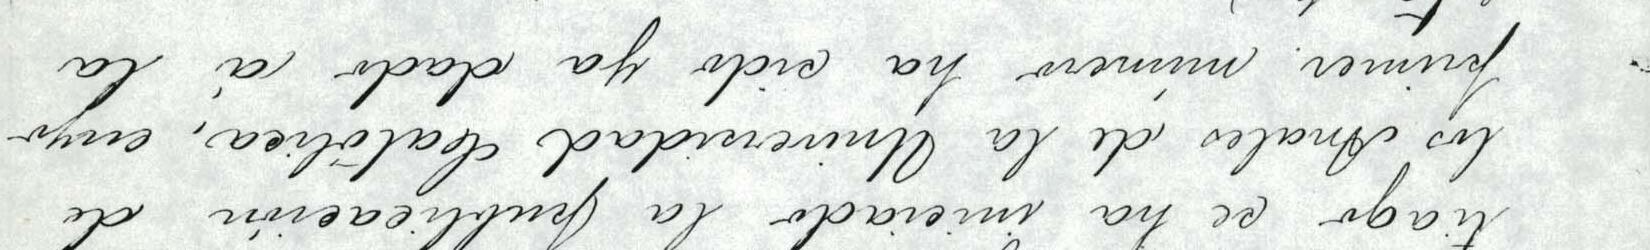 tiago se ha iniciado la publicación de
los Anales de la Universidad Católica, cuyo
primer número ha sido ya dado á la